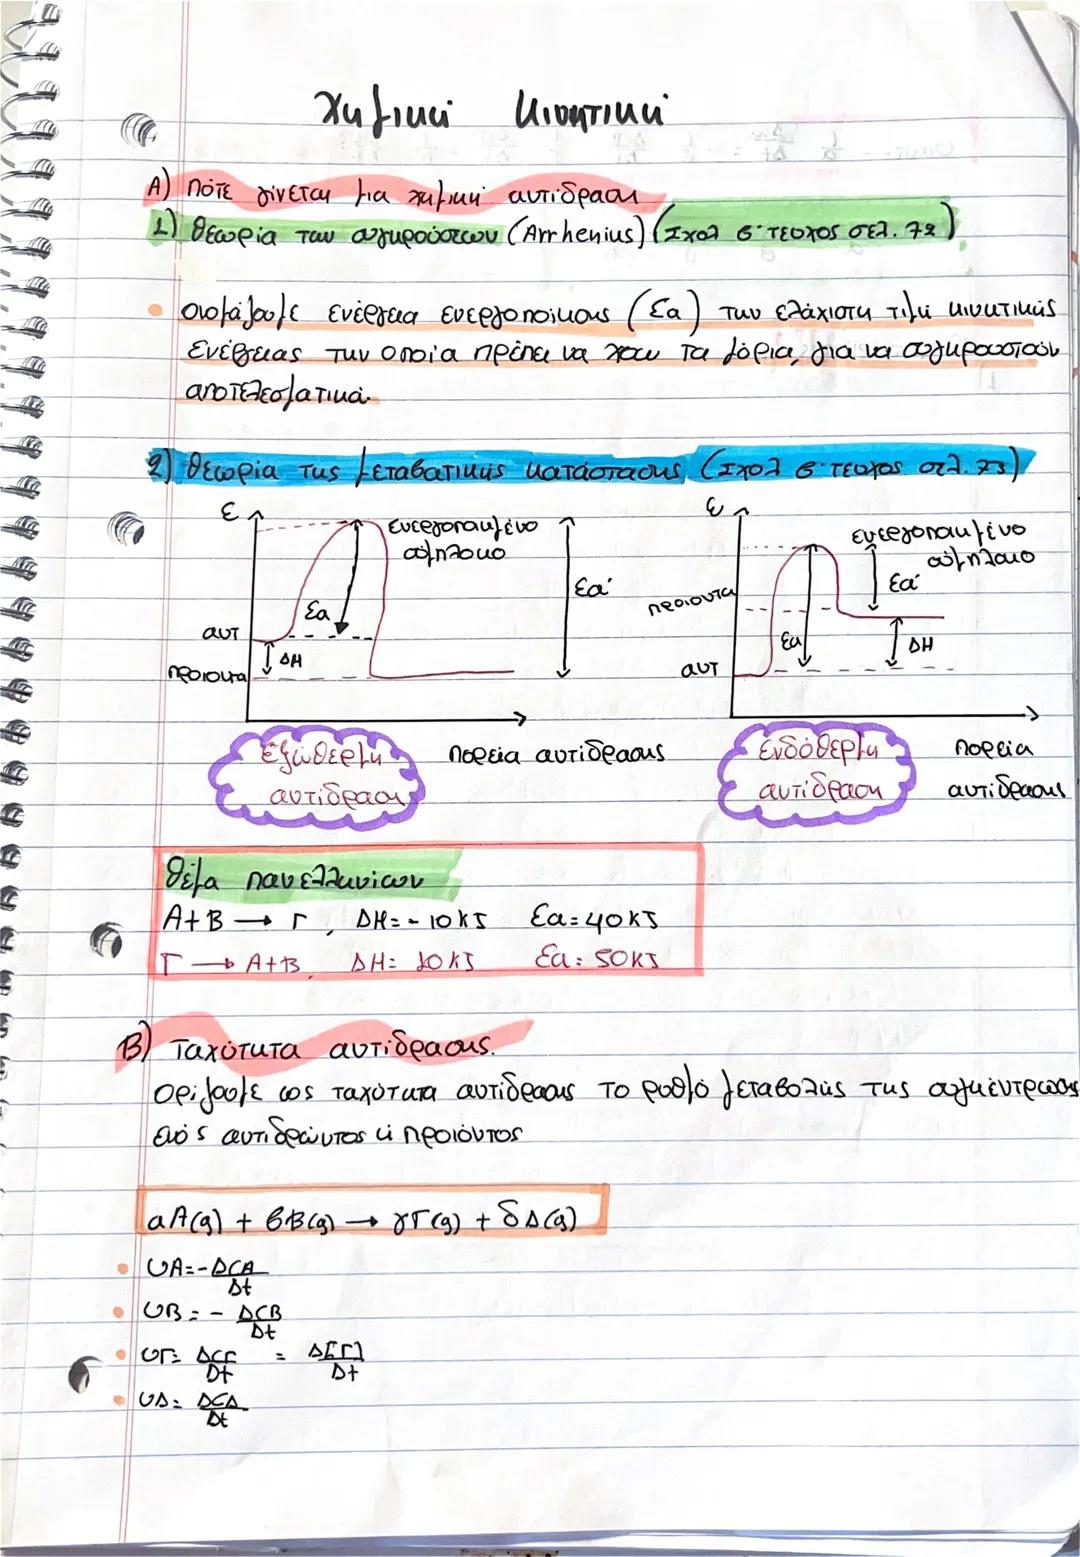 Χημική Κινητική
Α) Πότε γίνεται μια χημική αντίδραση
1) Θεωρία των συγκρούσεων (Arrhenius) (Σχολ β' τεύχος σελ. 72)
• Ονομάζουμε ενέργεια ενεργοποίησης (Εa) την ελάχιστη τιμή κινητικής
ενέργειας την οποία πρέπει να χουν τα μόρια, για να συγκρουστούν
αποτελεσματικά.
2) Θεωρία της μεταβατικής κατάστασης (Σχολ β' τεύχος σελ. 73)
Ε ενεργοποιημένο
σύμπλοκο
Εa
Εa'
αντ
ΔΗ
προιοντα
πορεία αντίδρασης
εξώθερμη
αντίδραση
Ε ενεργοποιημένο
σύμπλοκο
Εa'
προιοντα
Εa
ΔΗ
αντ
πορεία
αντίδρασης
ενδόθερμη
αντίδραση
Θέμα πανελληνίων
Α+Β → Γ, ΔΗ=-10KJ Εa=40KJ
Γ → Α+Β, ΔΗ= 10KJ Εa= 50KJ
Β) Ταχύτητα αντίδρασης.
Ορίζουμε ως ταχύτητα αντίδρασης το ρυθμό μεταβολής της συγκέντρωσης
ενός αντιδρώντος ή προιόντος
aA(g) + βB(g) → γΓ(g) + δΔ(g)
• UA=-ΔCA/Δt
• UB=-ΔCB/Δt
• UΓ= ΔCΓ/Δt = Δ[Γ]/Δt
• UΔ= ΔCΔ/Δt